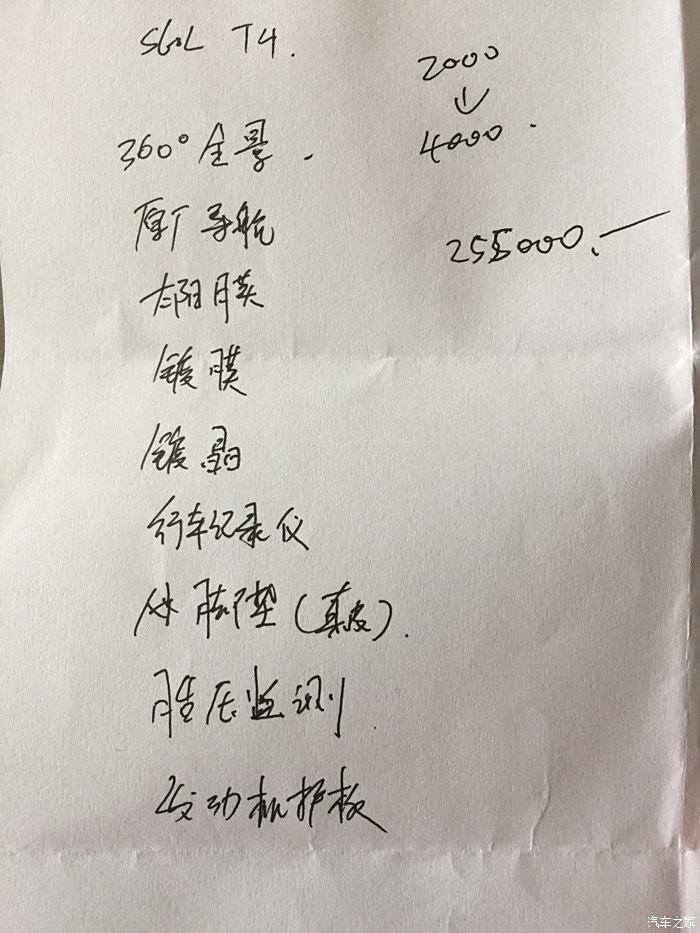 S60L T4.
2000
↓
4000.
360°全景.
255000.—
原厂导航
太阳膜
镀膜
镀晶
行车记录仪
脚垫(真皮).
胎压监测
发动机护板
汽车之家